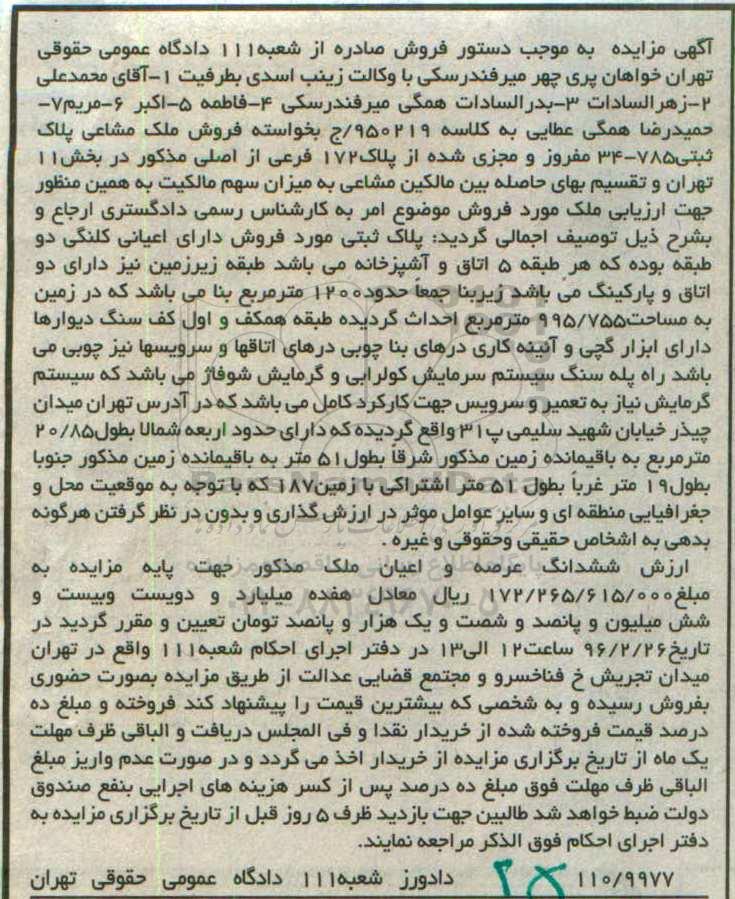 آگهی مزایده به موجب دستور فروش صادره از شعبه۱۱۱ دادگاه عمومی حقوقی
تهران خواهان پری چهر میرفندرسکی با وکالت زینب اسدی بطرفیت ۱-آقای محمدعلی
۲-زهرالسادات ۳-بدرالسادات همگی میرفندرسکی ۴-فاطمه ۵-اکبر ۶-مریم۷-
حمیدرضا همگی عطایی به کلاسه ۹۵۰۲۱۹/ج بخواسته فروش ملک مشاعی پلاک
ثبتی۷۸۵-۳۴ مفروز و مجزی شده از پلاک۱۷۲ فرعی از اصلی مذکور در بخش۱۱
تهران و تقسیم بهای حاصله بین مالکین مشاعی به میزان سهم مالکیت به همین منظور
جهت ارزیابی ملک مورد فروش موضوع امر به کارشناس رسمی دادگستری ارجاع و
بشرح ذیل توصیف اجمالی گردید: پلاک ثبتی مورد فروش دارای اعیانی کلنگی دو
طبقه بوده که هر طبقه ۵ اتاق و آشپزخانه می باشد طبقه زیرزمین نیز دارای دو
اتاق و پارکینگ می باشد زیربنا جمعا حدود۱۲۰۰ مترمربع بنا می باشد که در زمین
به مساحت۹۹۵/۷۵۵ مترمربع احداث گردیده طبقه همکف و اول کف سنگ دیوارها
دارای ابزار گچی و آئینه کاری درهای بنا چوبی درهای اتاقها و سرویسها نیز چوبی می
باشد راه پله سنگ سیستم سرمایش کولرابی و گرمایش شوفاژ می باشد که سیستم
گرمایش نیاز به تعمیر و سرویس جهت کارکرد کامل می باشد که در آدرس تهران میدان
چیذر خیابان شهید سلیمی پ۳۱ واقع گردیده که دارای حدود اربعه شمالا بطول۲۰/۸۵
مترمربع به باقیمانده زمین مذکور شرقا بطول۵۱ متر به باقیمانده زمین مذکور جنوبا
بطول۱۹ متر غرباً بطول ۵۱ متر اشتراکی با زمین۱۸۷ که با توجه به موقعیت محل و
جغرافیایی منطقه ای و سایر عوامل موثر در ارزش گذاری و بدون در نظر گرفتن هرگونه
بدهی به اشخاص حقیقی وحقوقی و غیره .
ارزش ششدانگ عرصه و اعیان ملک مذکور جهت پایه مزایده به
مبلغ۱۷۲/۲۶۵/۶۱۵/۰۰۰ ریال معادل هفده میلیارد و دویست وبیست و
شش میلیون و پانصد و شصت و یک هزار و پانصد تومان تعیین و مقرر گردید در
تاریخ۹۶/۲/۲۶ ساعت۱۲ الی۱۳ در دفتر اجرای احکام شعبه۱۱۱ واقع در تهران
میدان تجریش خ فناخسرو و مجتمع قضایی عدالت از طریق مزایده بصورت حضوری
بفروش رسیده و به شخصی که بیشترین قیمت را پیشنهاد کند فروخته و مبلغ ده
درصد قیمت فروخته شده از خریدار نقدا و فی المجلس دریافت و الباقی ظرف مهلت
یک ماه از تاریخ برگزاری مزایده از خریدار اخذ می گردد و در صورت عدم واریز مبلغ
الباقی ظرف مهلت فوق مبلغ ده درصد پس از کسر هزینه های اجرایی بنفع صندوق
دولت ضبط خواهد شد طالبین جهت بازدید ظرف ۵ روز قبل از تاریخ برگزاری مزایده به
دفتر اجرای احکام فوق الذکر مراجعه نمایند.
۱۱۰/۹۹۷۷ دادورز شعبه۱۱۱ دادگاه عمومی حقوقی تهران